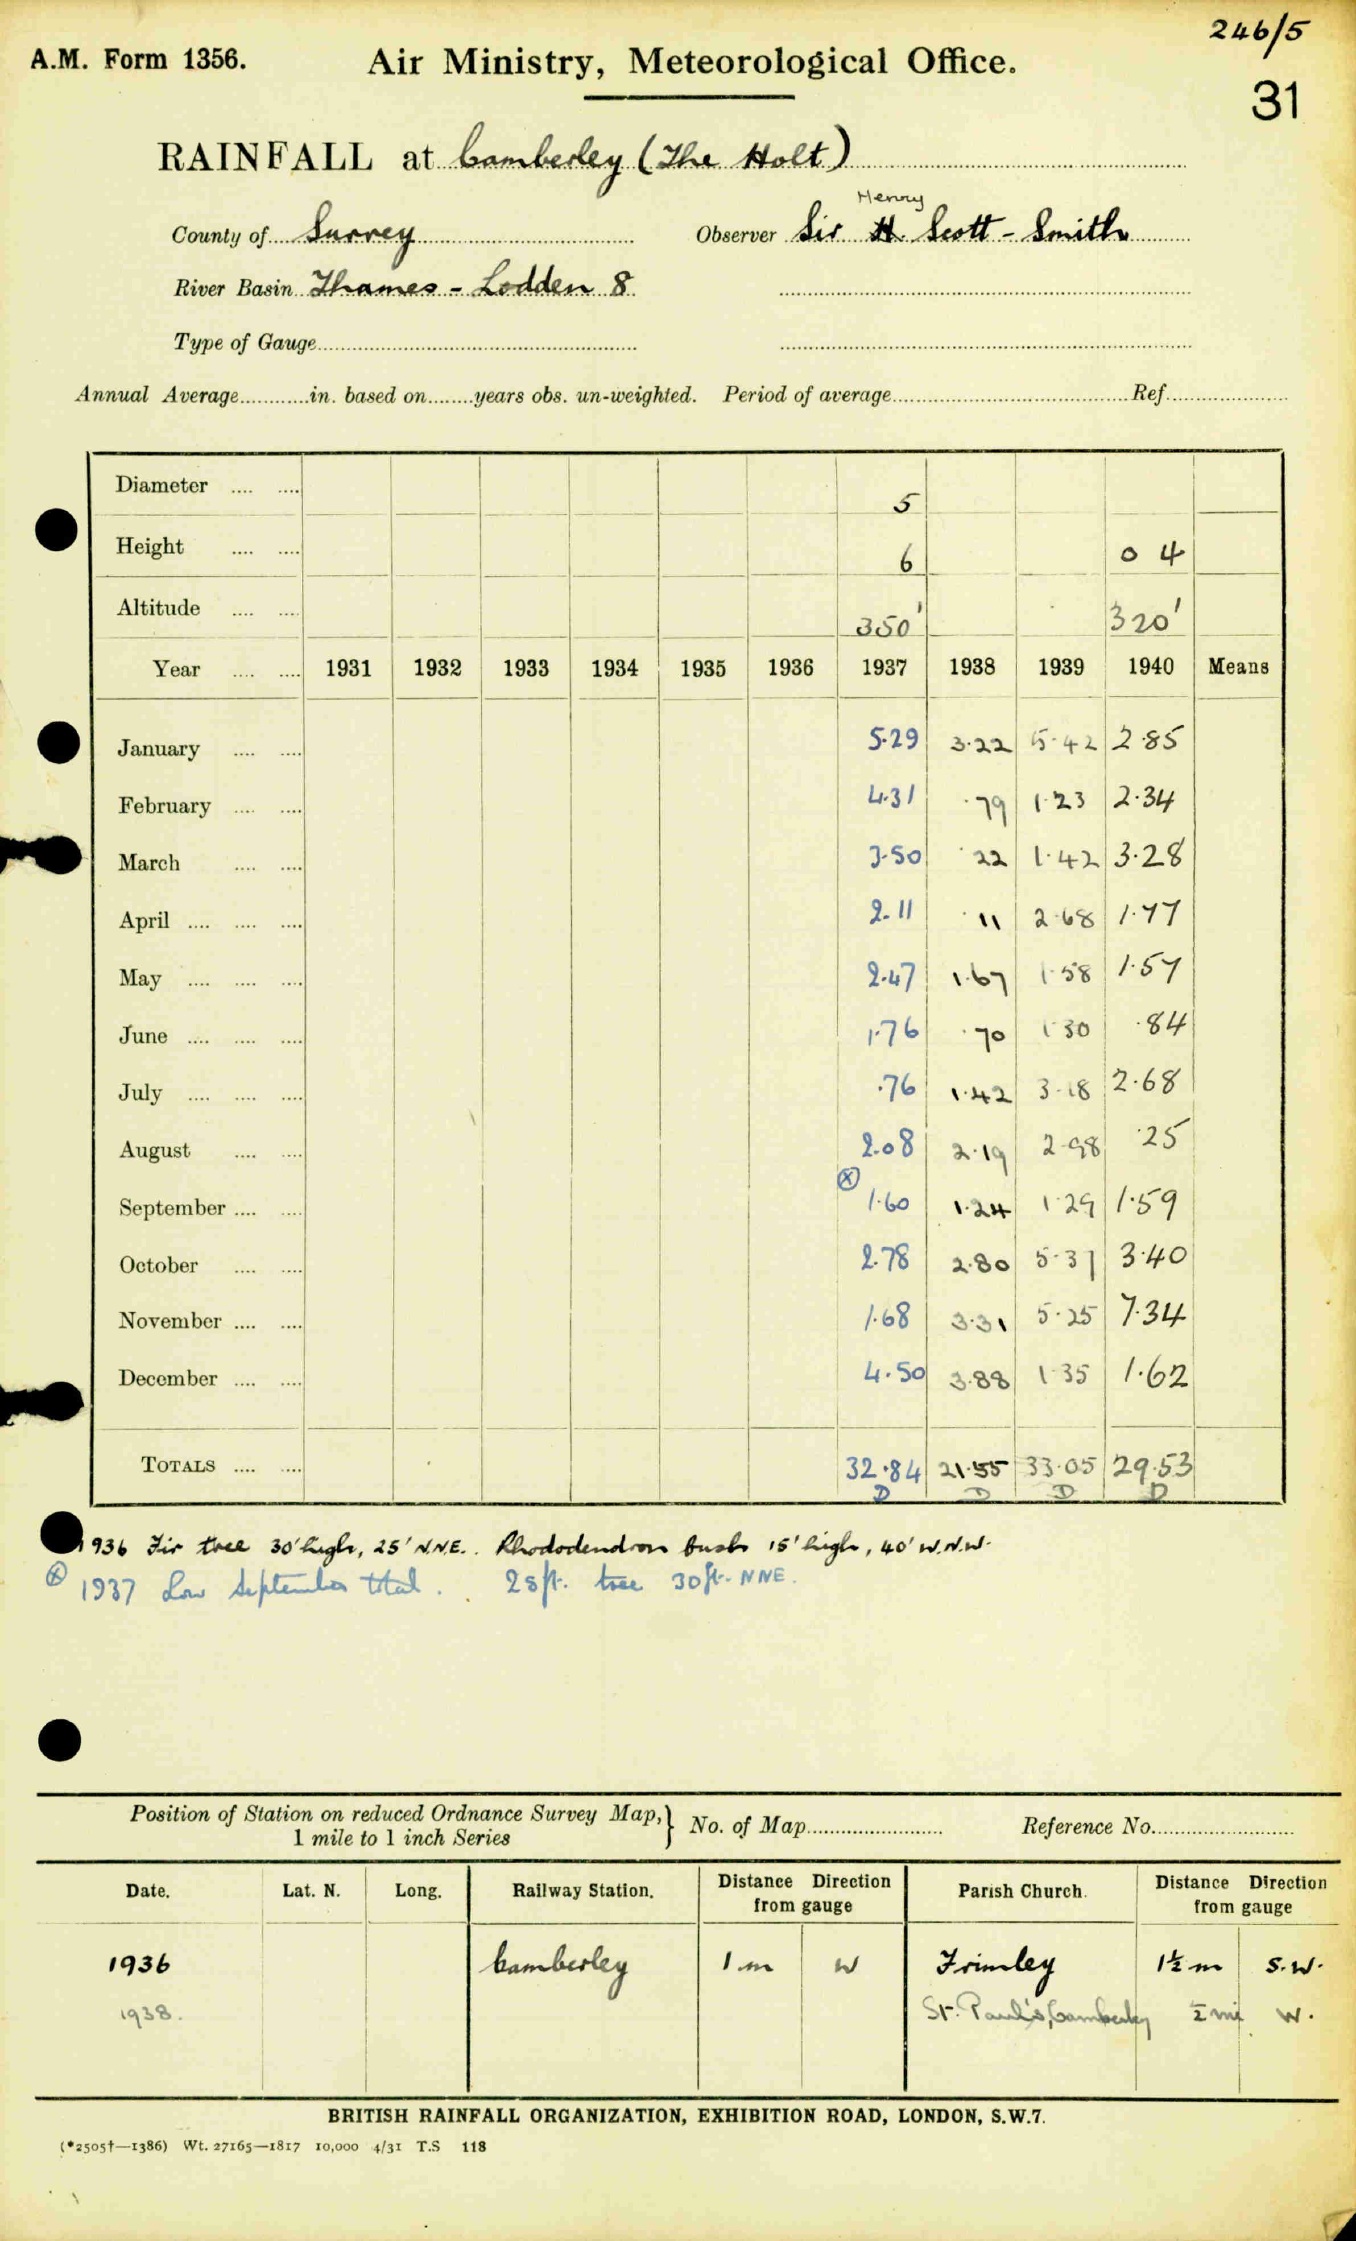 246/5
A.M. Form 1356. Air Ministry, Meteorological Office.
31
RAINFALL at Camberley (The Holt)
Henry
County of Surrey Observer Sir H. Scott-Smith
River Basin Thames - Lodden 8
Type of Gauge
Annual Average in. based on years obs. un-weighted. Period of average Ref.
Diameter 5
Height 6 0 4
Altitude 350' 320'
Year 1931 1932 1933 1934 1935 1936 1937 1938 1939 1940 Means
January 5.29 3.22 5.42 2.85
February 4.31 .79 1.23 2.34
March 3.50 .22 1.42 3.28
April 2.11 .11 2.68 1.77
May 2.47 1.67 1.58 1.57
June 1.76 .70 1.30 .84
July .76 1.42 3.18 2.68
August 2.08 2.19 2.98 .25
September ⊗ 1.60 1.24 1.29 1.59
October 2.78 2.80 5.37 3.40
November 1.68 3.31 5.25 7.34
December 4.50 3.88 1.35 1.62
TOTALS 32.84 21.55 33.05 29.53
D D D D
1936 Fir tree 30' high, 25' N.N.E. Rhododendron bush 15' high, 40' W.N.W.
⊗ 1937 Low September total. 28ft. tree 30ft. NNE.
Position of Station on reduced Ordnance Survey Map, 1 mile to 1 inch Series } No. of Map Reference No.
Date. Lat. N. Long. Railway Station. Distance Direction from gauge Parish Church. Distance Direction from gauge
1936 Camberley 1 m W Frimley 1½ m S.W.
1938. St. Paul's, Camberley ½ mi W.
BRITISH RAINFALL ORGANIZATION, EXHIBITION ROAD, LONDON, S.W.7.
(*2505†—1386) Wt. 27165—1817 10,000 4/31 T.S 118